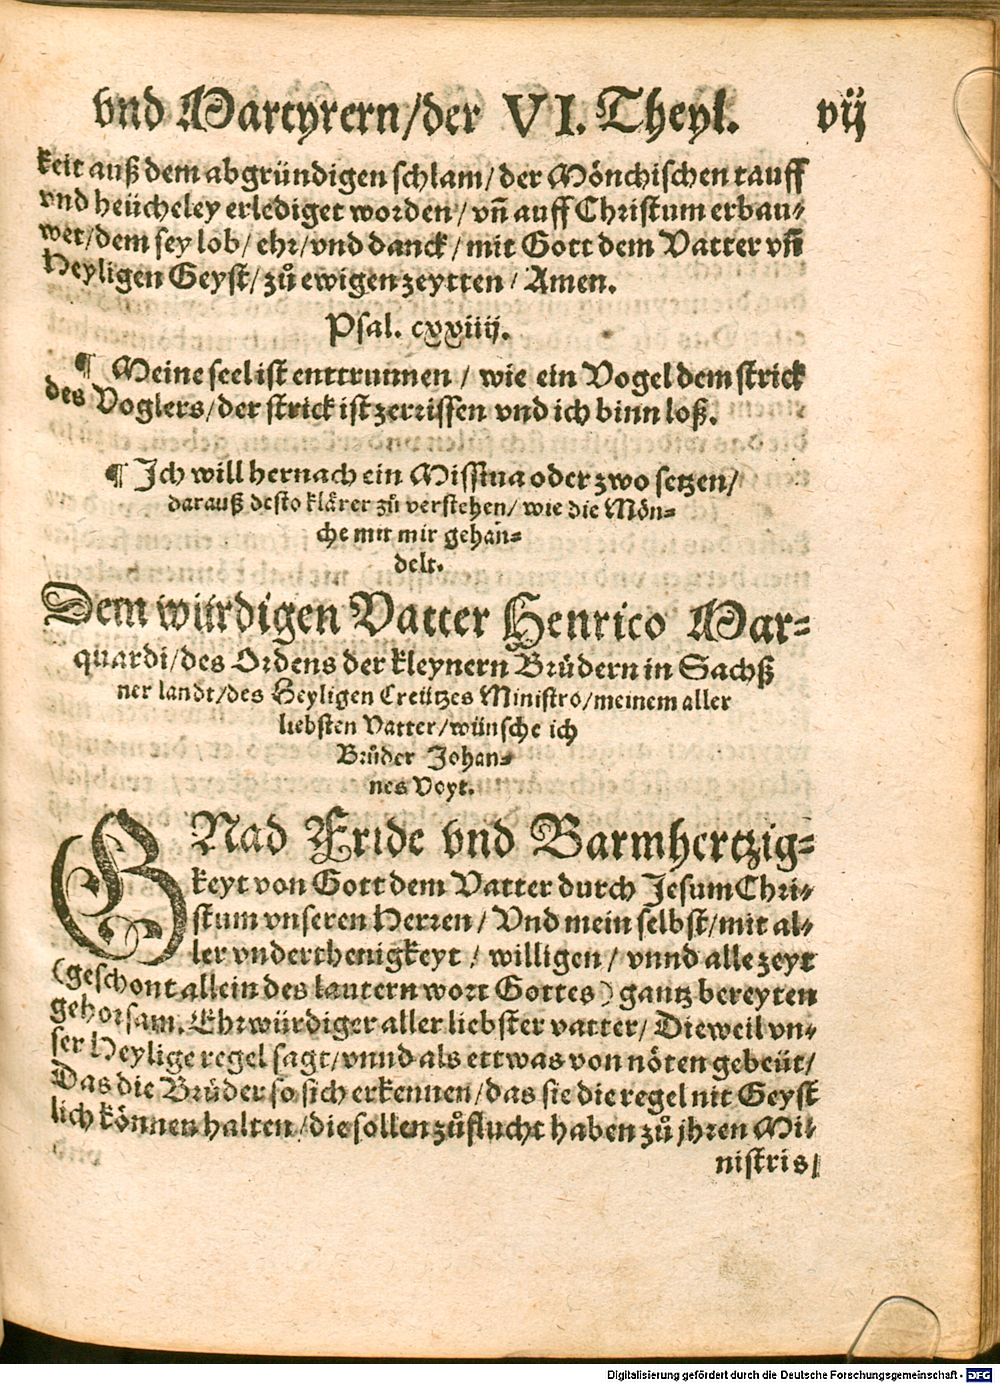 vnd Martyrern/der VI. Theyl. vij
keit auß dem abgründigen schlam/ der Mönchischen tauff
vnd heücheley erlediget worden/ vñ auff Christum erbau⸗
wet/dem sey lob/ ehr/vnd danck/ mit Gott dem Vatter vñ
Heyligen Geyst/ zů ewigen zeytten/ Amen.
Psal. cxxiiij.
¶ Meine seel ist enttrunnen/ wie ein Vogel dem strick
des Voglers/der strick ist zerrissen vnd ich binn loß.
¶ Ich will hernach ein Missiua oder zwo setzen/
darauß desto klärer zů verstehen/ wie die Mön⸗
che mit mir gehan⸗
delt.
Dem würdigen Vatter Henrico Mar⸗
quardi/des Ordens der kleynern Brüdern in Sachß
ner landt/des Heyligen Creützes Ministro/meinem aller
liebsten Vatter/wünsche ich
Brůder Johan⸗
nes Voyt.
GNad Fride vnd Barmhertzig⸗
keyt von Gott dem Vatter durch Jesum Chri⸗
stum vnseren Herren/ Vnd mein selbst/mit al⸗
ler vnderthenigkeyt/ willigen/ vnnd alle zeyt
(geschont allein des lautern wort Gottes) gantz bereyten
gehorsam. Ehrwürdiger aller liebster vatter/ Dieweil vn⸗
ser Heylige regel sagt/vnnd als ettwas von nöten gebeüt/
Das die Brüder so sich erkennen/das sie die regel nit Geyst
lich können halten/die sollen zůflucht haben zů jhren Mi⸗
nistris/
Digitalisierung gefördert durch die Deutsche Forschungsgemeinschaft - DFG